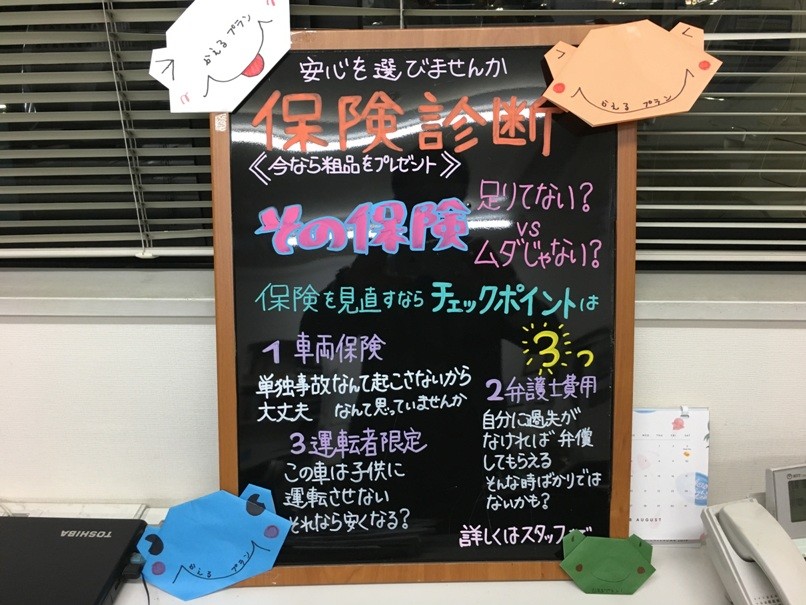 かえるプラン
かえる プラン
安心を選びませんか
保険診断
《今なら粗品をプレゼント》
その保険
足りてない?
vs
ムダじゃない?
保険を見直すなら チェックポイントは
3つ
1 車両保険
単独事故なんて起こさないから
大丈夫 なんて思っていませんか
2 弁護士費用
自分に過失が
なければ 弁償
してもらえる
そんな時ばかりでは
ないかも?
3 運転者限定
この車は子供に
運転させない
それなら安くなる?
詳しくはスタッフまで
かえる プラン
TOSHIBA
AUGUST